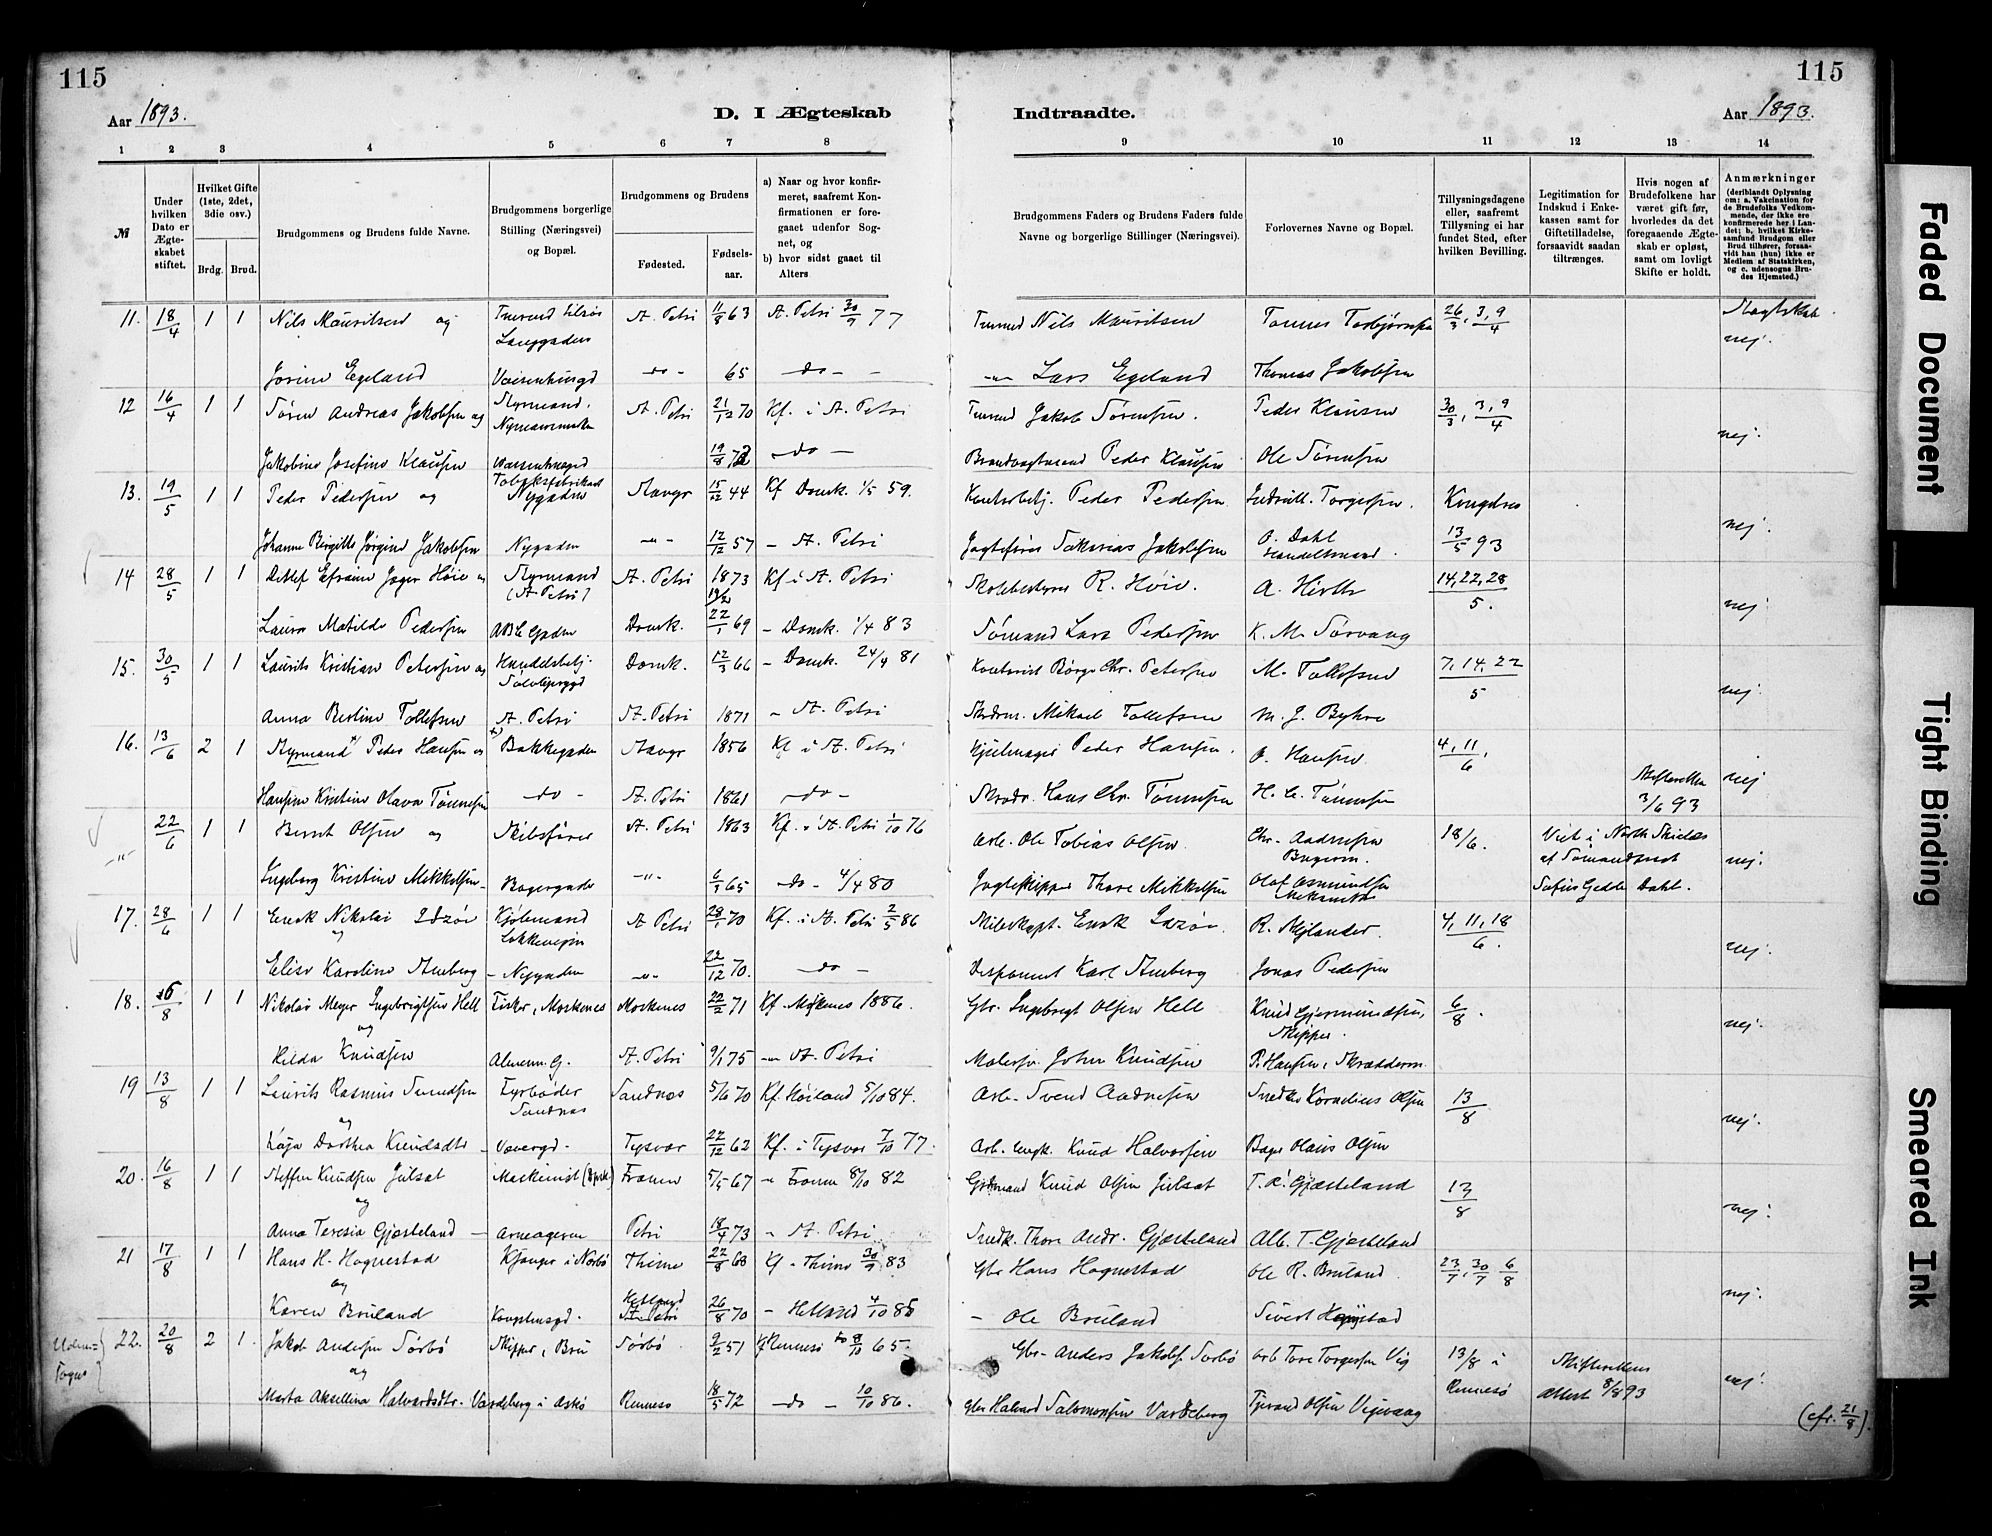 115
115
Aar 1893.
D. I Ægteskab
Indtraadte.
Aar 1893.
1 2 3 4 5 6 7 8 9 10 11 12 13 14
№
Under hvilken Dato er Ægteskabet stiftet.
Hvilket Gifte (1ste, 2det, 3die osv.)
Brdg. Brud.
Brudgommens og Brudens fulde Navne.
Brudgommens borgerlige Stilling (Næringsvei) og Bopæl.
Brudgommens og Brudens
Fødested.
Fødselsaar.
a) Naar og hvor konfirmeret, saafremt Konfirmationen er foregaaet udenfor Sognet, og
b) hvor sidst gaaet til Alters
Brudgommens Faders og Brudens Faders fulde Navne og borgerlige Stillinger (Næringsvei).
Forlovernes Navne og Bopæl.
Tillysningsdagene eller, saafremt Tillysning ei har fundet Sted, efter hvilken Bevilling.
Legitimation for Indskud i Enkekassen samt for Giftetilladelse, forsaavidt saadan tiltrænges.
Hvis nogen af Brudefolkene har været gift før, hvorledes da det foregaaende Ægteskab er opløst, samt om lovligt Skifte er holdt.
Anmærkninger (deriblandt Oplysning om: a. Vakcination for de Brudefolks Vedkommende, der ikke ere konfirmerede her i Landet; b. hvilket Kirkesamfund Brudgom eller Brud tilhører, forsaavidt han (hun) ikke er Medlem af Statskirken, og c. udensogns Brudes Hjemsted.)
11. 18/4 1 1 Nils Mauritsen og St. Petri 11/8 63 St. Petri 30/9 77 Nils Mauritsen 26/3, 3, 9/4 Slagtskab
nej.
Jorine Egeland Vaisenhusgd -do- 65 -do- -"- Lars Egeland Thomas Jakobsen
12 16/4 1 1 Søren Andreas Jakobsen og Styrmand. St. Petri 21/12 70 Kf. i St. Petri Jakob Sørensen. Peder Klausen 30/3, 3, 9/4
nej.
Jakobine Josefine Klausen 19/8 -do- Brandvagtmand Peder Klausen Ole Sørensen
13. 19/5 1 1 Peder Pedersen og Tobaksfabrikant Nygaden Stavgr 15/12 44 Kf Domk. 1/5 59. Kontorbetj. Peder Pedersen Torgersen. Kongebrev
nej.
Johanne Birgitte Jørgine Jakobsen Nygaden -"- 12/12 57 - St. Petri Jagtefører Sakarias Jakobsen O. Dahl Handelsmand. 13/5 93
14 28/5 1 1 Ditlef Efraim Jager Høie og Styrmand (St. Petri) St. Petri 1873 Kf i St. Petri Skolebestyrer R. Høie. A. Hirth 14, 22, 28/5.
nej.
Laura Matilde Pedersen ABC Gaden Domk. 22/1 69 - Domk. 1/4 83 Sømand Lars Pedersen K. M. Sørvang
15. 30/5 1 1 Laurits Kristian Petersen og Handelsbetj. Domk. 12/3 66 - Domk. 24/4 81 Kontorist Børge Chr. Petersen M. Tollefsen 7, 14, 22/5
nej.
Anna Bertine Tollefsen St. Petri St. Petri 1871 - St. Petri Mikael Tollefsen M. J. Byhre
16. 13/6 2 1 Styrmand Peder Hansen og Bakkegaden Stavgr 1856 Kf i St. Petri Hjulmager Peder Hansen. O. Hansen 4, 11/6.
Skifteretten 3/6 93 nej
Hansine Kristine Olava Tønnesen -do- St. Petri 1861 -do- Skrædr. Hans Chr. Tønnesen H. C. Tønnesen
-"- 22/6 1 1 Bernt Olsen og Skibsfører St. Petri 1863 Kf. i St. Petri 1/10 76 Arb. Ole Tobias Olsen Chr. Aadnesen Bagerm. 18/6. Viet i North Shields
af Sømandsprest nej.
Ingeborg Kristine Mikkelsen - Bagergaden -"- 6/1 65 -do- 4/4 80 Jagteskipper Thore Mikkelsen Olaf Asmundsen Sofus Gedde Dahl.
17. 28/6 1 1 Enok Nikolai Idsøe og Kjøbmand Løkkeveien St. Petri 28/1 70 Kf. i St. Petri 2/5 86 Skibskapt. Enok Idsøe. R. Mejlænder. 4, 11, 18/6.
nej.
Elise Karoline Amberg - Nygaden -"- 22/12 70. -do- Disponent Karl Amberg Jonas Pedersen
18. 6/8 1 1 Nikolai Meyer Ingebrigtsen Hell og Fisker, Moskenes Moskenes 22/2 71 Kf. Moskenes 1886. Gbr. Ingebrigt Olsen Hell Knud Gjermundsen, Skipper. 6/8.
nej.
Hilda Knudsen Almenn. G. St. Petri 9/1 75 -"- St. Petri Malersv. John Knudsen P. Hansen, Skrædderm.
19 13/8 1 1 Laurits Rasmus Svendsen og Fyrbøder Sandnes Sandnes 5/6 70 Kf. Høiland 5/10 84. Arb. Svend Aadnesen Snedker Kornelius Olsen 13/8
nej.
Kaja Dorthea Knudsdtr - Vævergd. Tysvær 22/12 62 Kf. i Tysvær 7/10 77. Arb. Knud Halvorsen Bager Olaus Olsen
20. 16/8 1 1 Steffen Knudsen Julsat og Maskinist Fræna 5/5 67 " Fræna 8/10 82 Knud Olsen Julsat T. R. Gjæsteland 13/8
nej.
Anna Teresia Gjæsteland - Arneageren Petri 18/4 73 " St. Petri Snedk. Thore Andr. Gjæsteland Alb. T. Gjæsteland
21 17/8 1 1 Hans H. Hognestad og Thime 22/8 68 Kf - Thime 30/9 83 Gbr Hans Hognestad Ole R. Bruland 23/7, 30/7 6/8
nej.
Karen Bruland Kongshusgd. Hetland St. Petri 26/8 70 - Hetland 4/10 85 - Ole Bruland Sivert
Udensogns 22. 20/8 2 1. Jakob Andersen Sørbø og Skipper, Bru Sørbø 9/2 51 Kf Rennesø 8/10 65. Gbr. Anders Jakobs. Sørbø Arb Tore Torgersen Vig 13/8 i Rennesø Skifterettens Attest 8/8 93
nej.
Marta Akseline Halvardsdtr. Vardeberg i Askø Rennesø 18/5 72 -do- 10/10 86. Gbr Halvard Salomonsen Vardeberg Tjerand Olsen
(cfr. 21/8).
Faded Document
Tight Binding
Smeared Ink